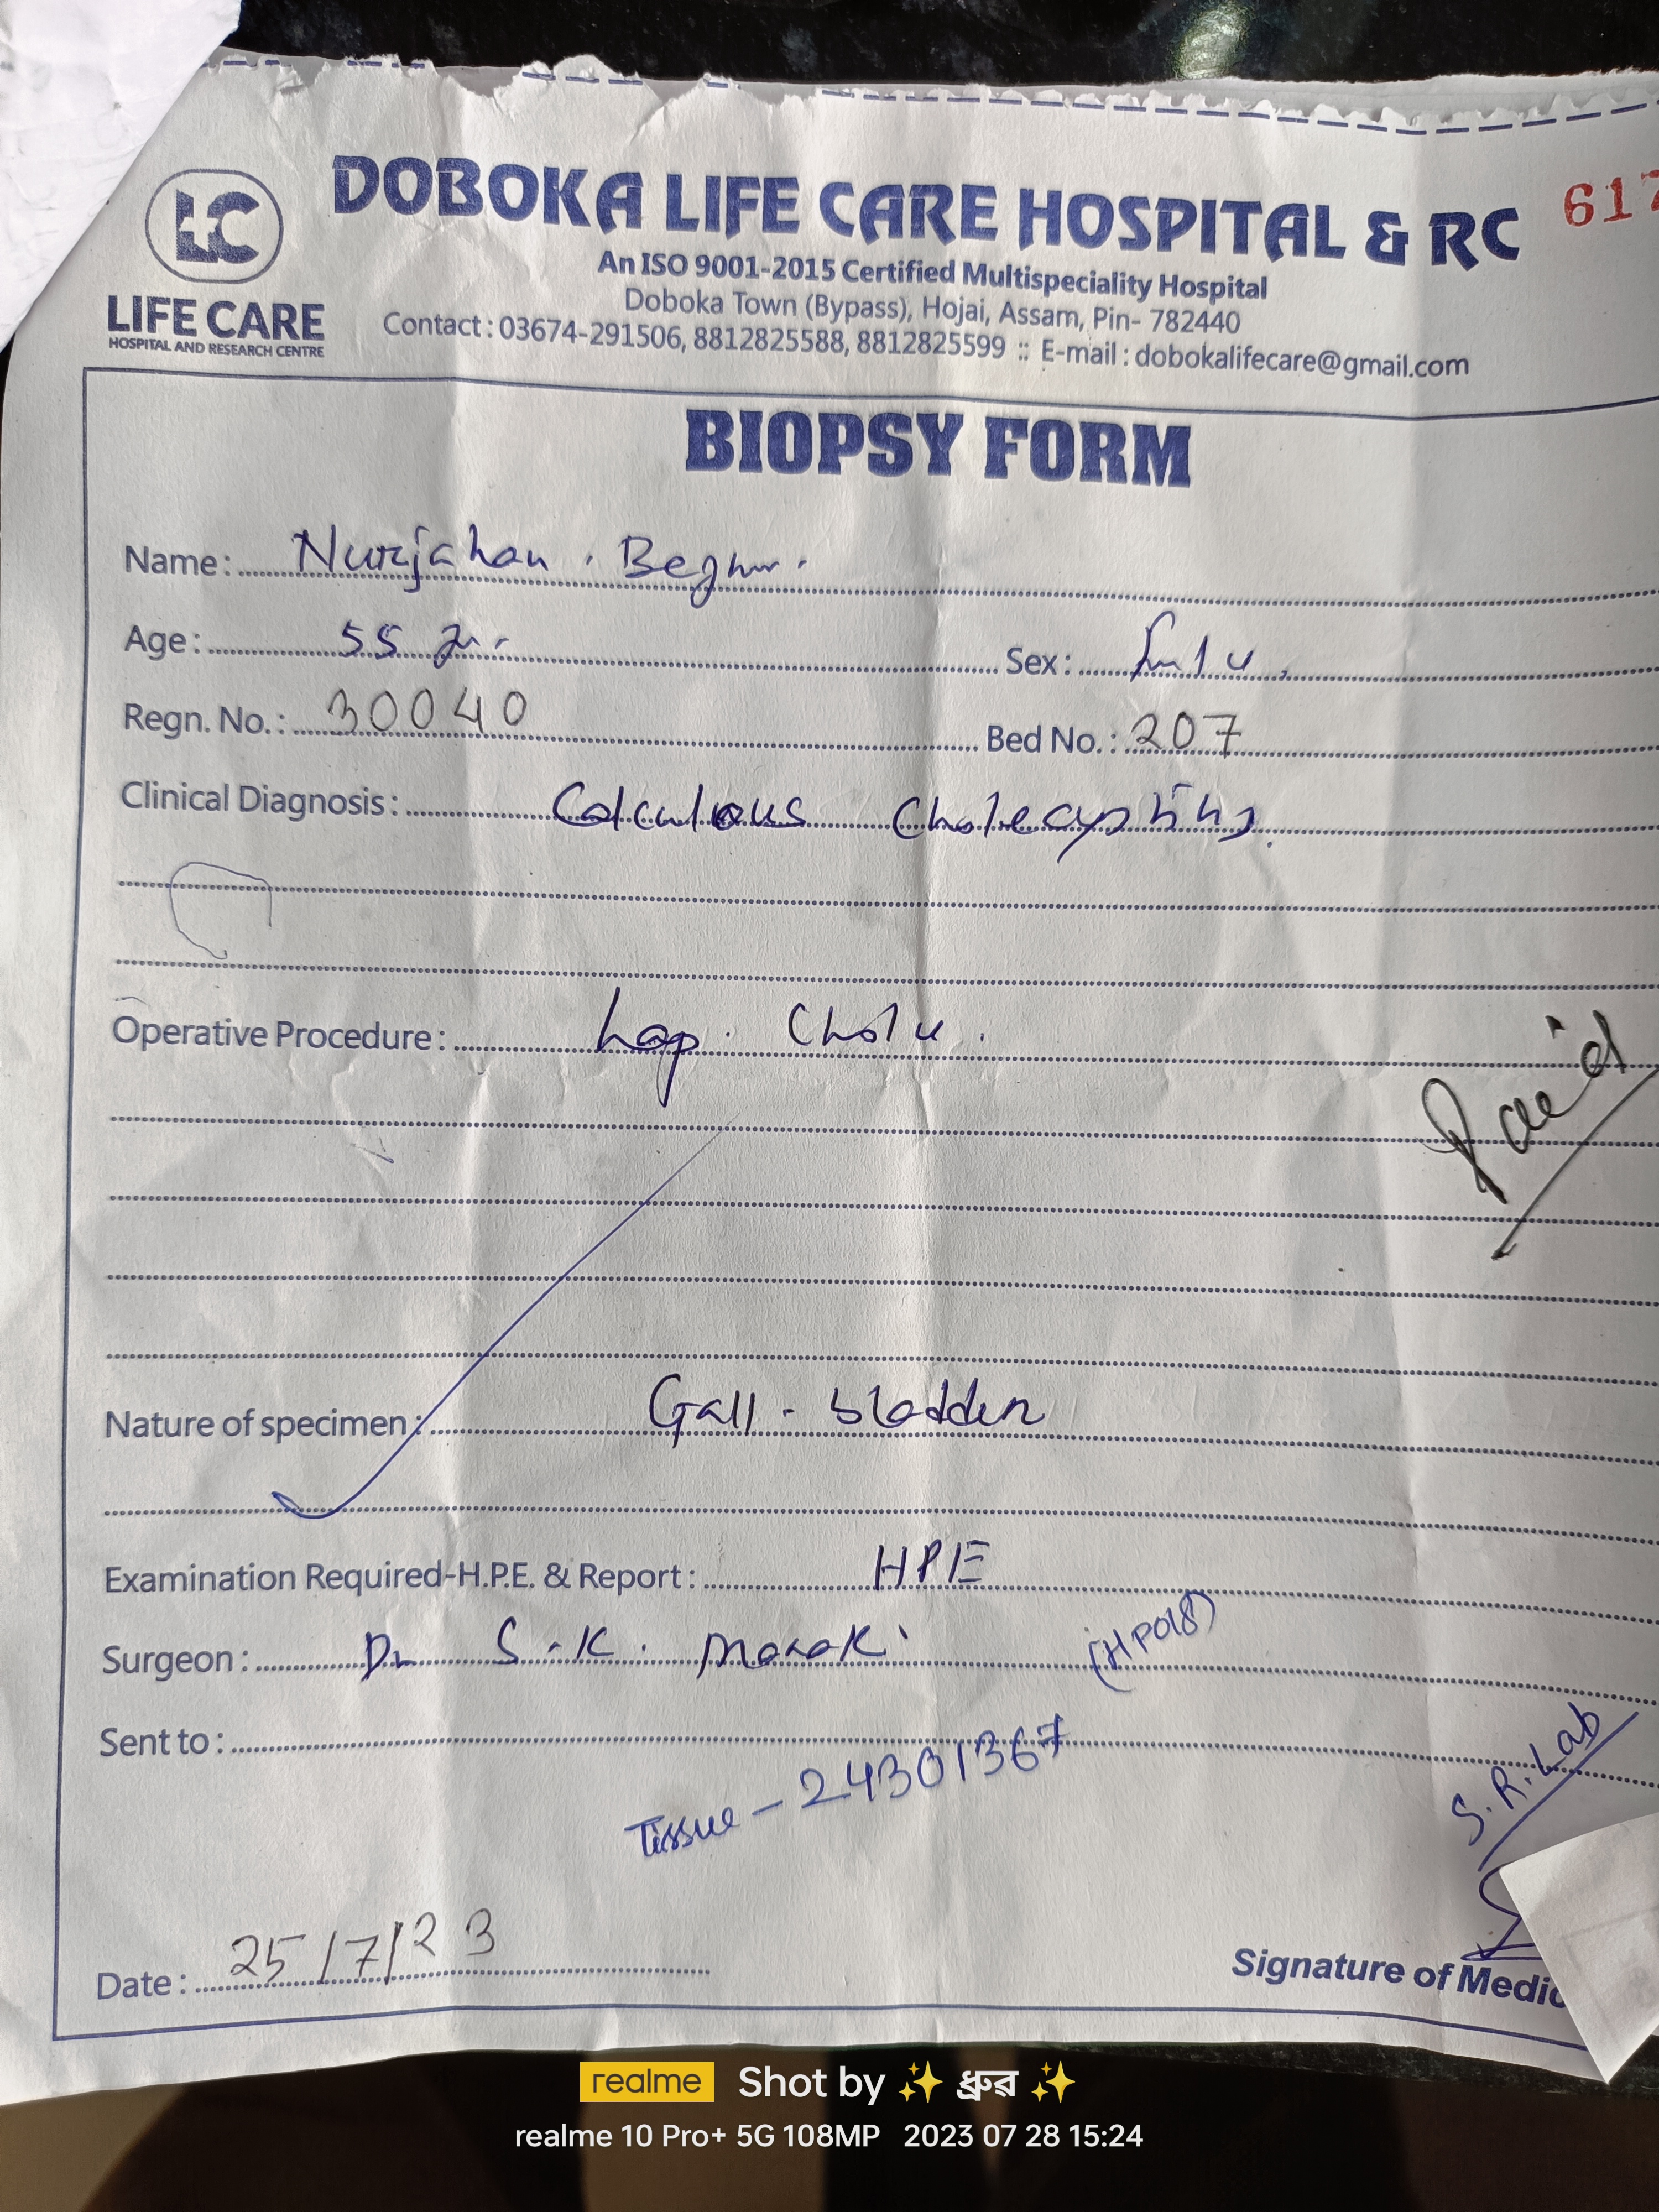 DOBOKA LIFE CARE HOSPITAL & RC 617
LC
LIFE CARE
HOSPITAL AND RESEARCH CENTRE
An ISO 9001-2015 Certified Multispeciality Hospital
Doboka Town (Bypass), Hojai, Assam, Pin- 782440
Contact : 03674-291506, 8812825588, 8812825599 :: E-mail : dobokalifecare@gmail.com
BIOPSY FORM
Name : Nurjahan . Begum .
Age : 55 yr. Sex :
Regn. No. : 30040 Bed No. : 207
Clinical Diagnosis : Calculous Cholecystitis.
Operative Procedure : Lap. Chole.
Paid
Nature of specimen : Gall - bladder
Examination Required-H.P.E. & Report : HPE
Surgeon : Dr S.K. Marak (HP018)
Sent to :
Tissue - 24301367
S.R. Lab
Date : 25/7/23
Signature of Medic
realme Shot by ✨ ধ্ৰুৱ ✨
realme 10 Pro+ 5G 108MP 2023 07 28 15:24